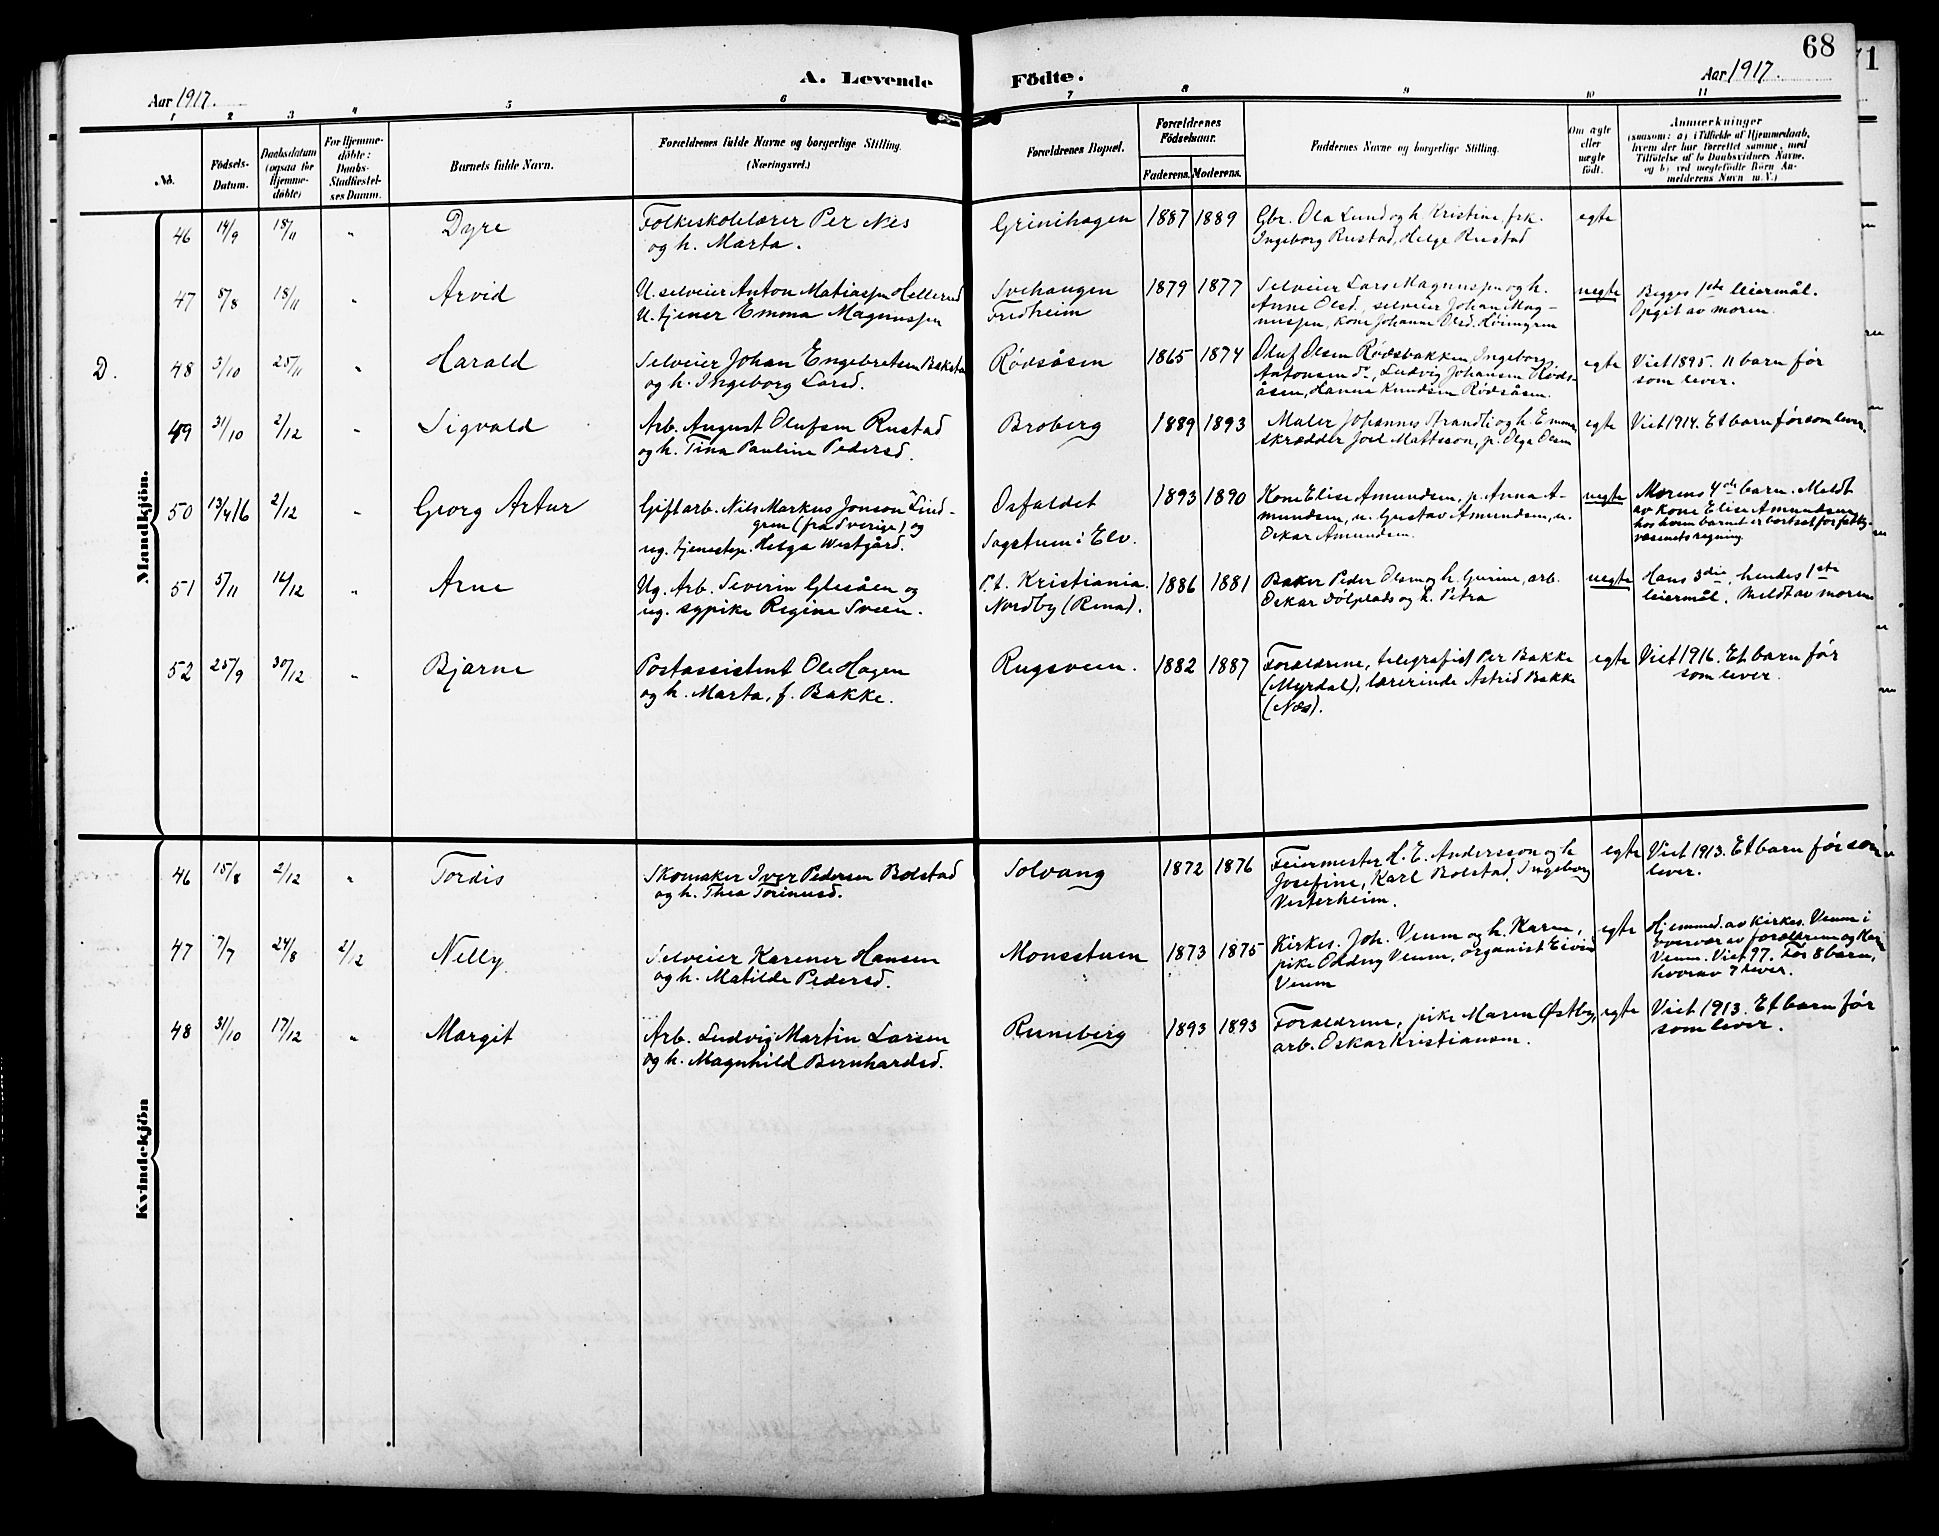 68
71
A. Levende Födte.
Aar 1917.
Aar 1917.
1 2 3 4 5 6 7 8 9 10 11
No.
Födsels-
Datum.
Daabsdatum
(ogsaa for
Hjemme-
döbte)
For Hjemme-
döbte:
Daabs-
Stadfæstel-
ses Datum.
Barnets fulde Navn.
Forældrenes fulde Navne og borgerlige Stilling.
(Næringsvei.)
Forældrenes Bopæl.
Forældrenes
Födselsaar.
Faderens. Moderens.
Faddernes Navne og borgerlige Stilling.
Om ægte
eller
uægte
födt.
Anmærkninger
(saasom: a) i Tilfælde af Hjemmedaab,
hvem der har forrettet samme, med
Tilföielse af to Daabsvidners Navne,
og b) ved uægtefödte Börn An-
melderens Navn m. V.)
Mandkjön.
46 14/9 18/11 " Dyre
Folkeskolelærer Per Nes
og h. Marta.
Grinihagen 1887 1889
Gbr. Ola Lund og h. Kristine, frk.
Ingeborg Rustad, Helge Rustad
egte
47 8/8 18/11 " Arvid
U. selveier Anton Matiassen Hellerud
U. tjener Emma Magnussen
Svehaugen
Fredheim
1879 1877
Selveier Lars Magnussen og h.
Anne Olsd., selveier Johan Mag-
nussen, kone Johanne Olsd.
uegte
Begges 1ste leiermål.
Opgit av moren.
D.
48 3/10 25/11 " Harald
Selveier Johan Engebretsen
og h. Ingeborg Larsd.
Rødsåsen 1865 1874
Oluf Olsen Rødsbakken, Ingeborg
Antonsen do, Ludvig Johansen Røds-
åsen, Hanna Knudsen Rødsåsen.
egte
Viet 1895. 11 barn før
som lever.
49 31/10 2/12 " Sigvald
Arb. August Olufsen Rustad
og h. Tina Pauline Pedersd.
Broberg 1889 1893
Maler Johannes Strandli og h. Emma,
skrædder Joel Mattsson, p. Olga Olsen
egte
Viet 1914. Et barn før som lever.
50 13/4 16 2/12 " Georg Artur
Gift arb. Nils Markus Jonson Lind-
gren (fra Sverige) og
ug. tjenestep. Helga Westgård.
Osfaldet
Sagstuen i Elv.
1893 1890
Kone Elise Amundsen, p. Anna A-
mundsen, u. Gustav Amundsen, u.
Oskar Amundsen.
uegte
Morens 4de barn. Meldt
av kone Elise Amundsen,
hos hvem barnet er bortsat for fattig-
væsenets regning.
51 5/11 16/12 " Arne
Ug. Arb. Severin Glesåen og
ug. sypike Regine Sveen.
P.t. Kristiania.
Nordby (Rena).
1886 1881
Baker Peder Olsen og h. Gurine, arb.
Oskar Sölplads og h. Petra
uegte
Hans 3die, hendes 1ste
leiermål. Meldt av moren
52 25/9 30/12 " Bjarne
Postassistent Ole Hagen
og h. Marta, f. Bakke.
Rugsveen. 1882 1887
Forældrene, telegrafist Per Bakke
(Myrdal), lærerinde Astrid Bakke
(Næs).
egte
Viet 1916. Et barn før
som lever.
Kvindekjön
46 15/8 2/12 " Tordis
Skomaker Iver Pedersen Bolstad
og h. Thea Torinusd.
Solvang 1872 1876
Feiermester H. E. Andersson og h.
Josefine, Karl Bolstad, Ingeborg
Vesterheim.
egte
Viet 1913. Et barn før som
lever.
47 7/7 24/8 2/12 Nelly
Selveier Karener Hansen
og h. Matilde Pedersd.
Monsstuen 1873 1875
Kirkes. Joh. Veum og h. Karen,
pike Oddny Veum, organist Eivind
Veum
egte
Hjemmed. av Kirkes. Veum i
overvær av forældrene og Karen
Veum. Viet 97. Før 8 barn,
hvorav 7 lever.
48 31/10 17/12 " Margit
Arb. Ludvig Martin Larsen
og h. Magnhild Bernhardsd.
Runeberg 1893 1893
Forældrene, pike Maren Østby,
arb. Oskar Kristiansen.
egte
Viet 1913. Et barn før
som lever.